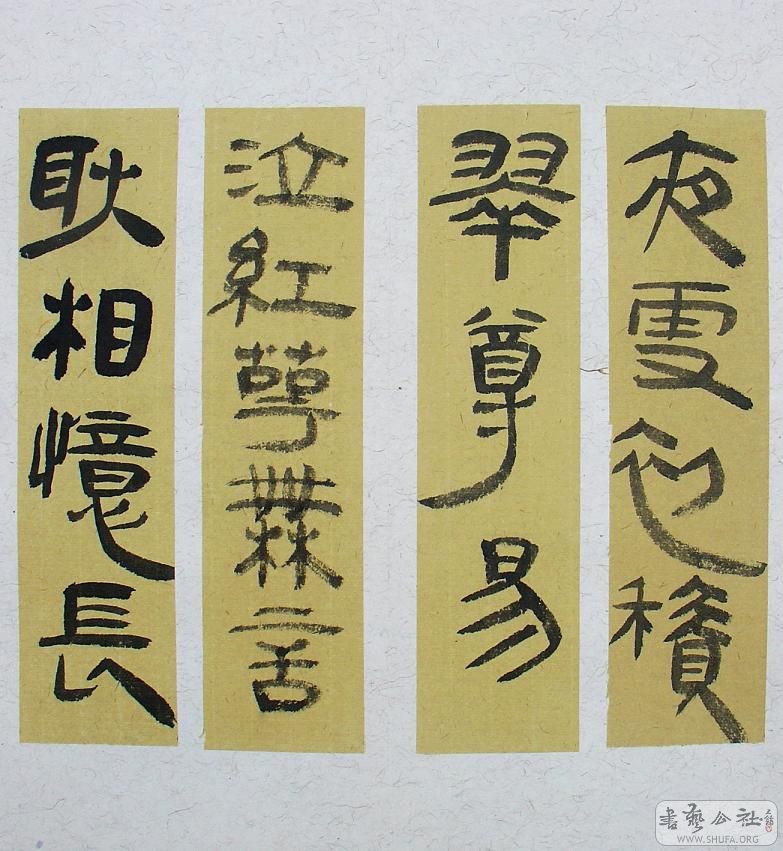 夜雪初積
翠尊易
泣紅萼無言
耿相憶長
書藝公社
WWW.SHUFA.ORG